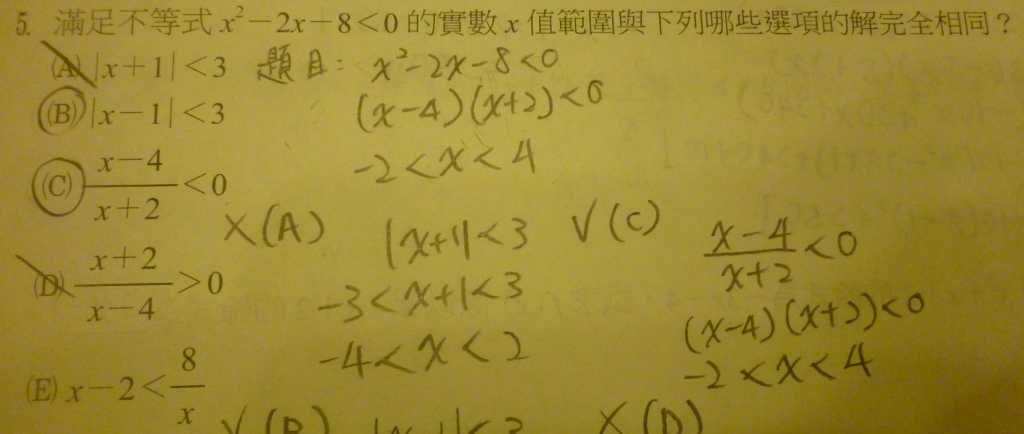 5. 滿足不等式 x²-2x-8<0 的實數 x 值範圍與下列哪些選項的解完全相同？
(A) |x+1|<3
(B) |x-1|<3
(C) x-4/x+2 <0
(D) x+2/x-4 >0
(E) x-2< 8/x
題目: x²-2x-8<0
(x-4)(x+2)<0
-2<x<4
X(A) |x+1|<3
-3<x+1<3
-4<x<2
V(C) x-4/x+2 <0
(x-4)(x+2)<0
-2<x<4
V(B)
X(D)